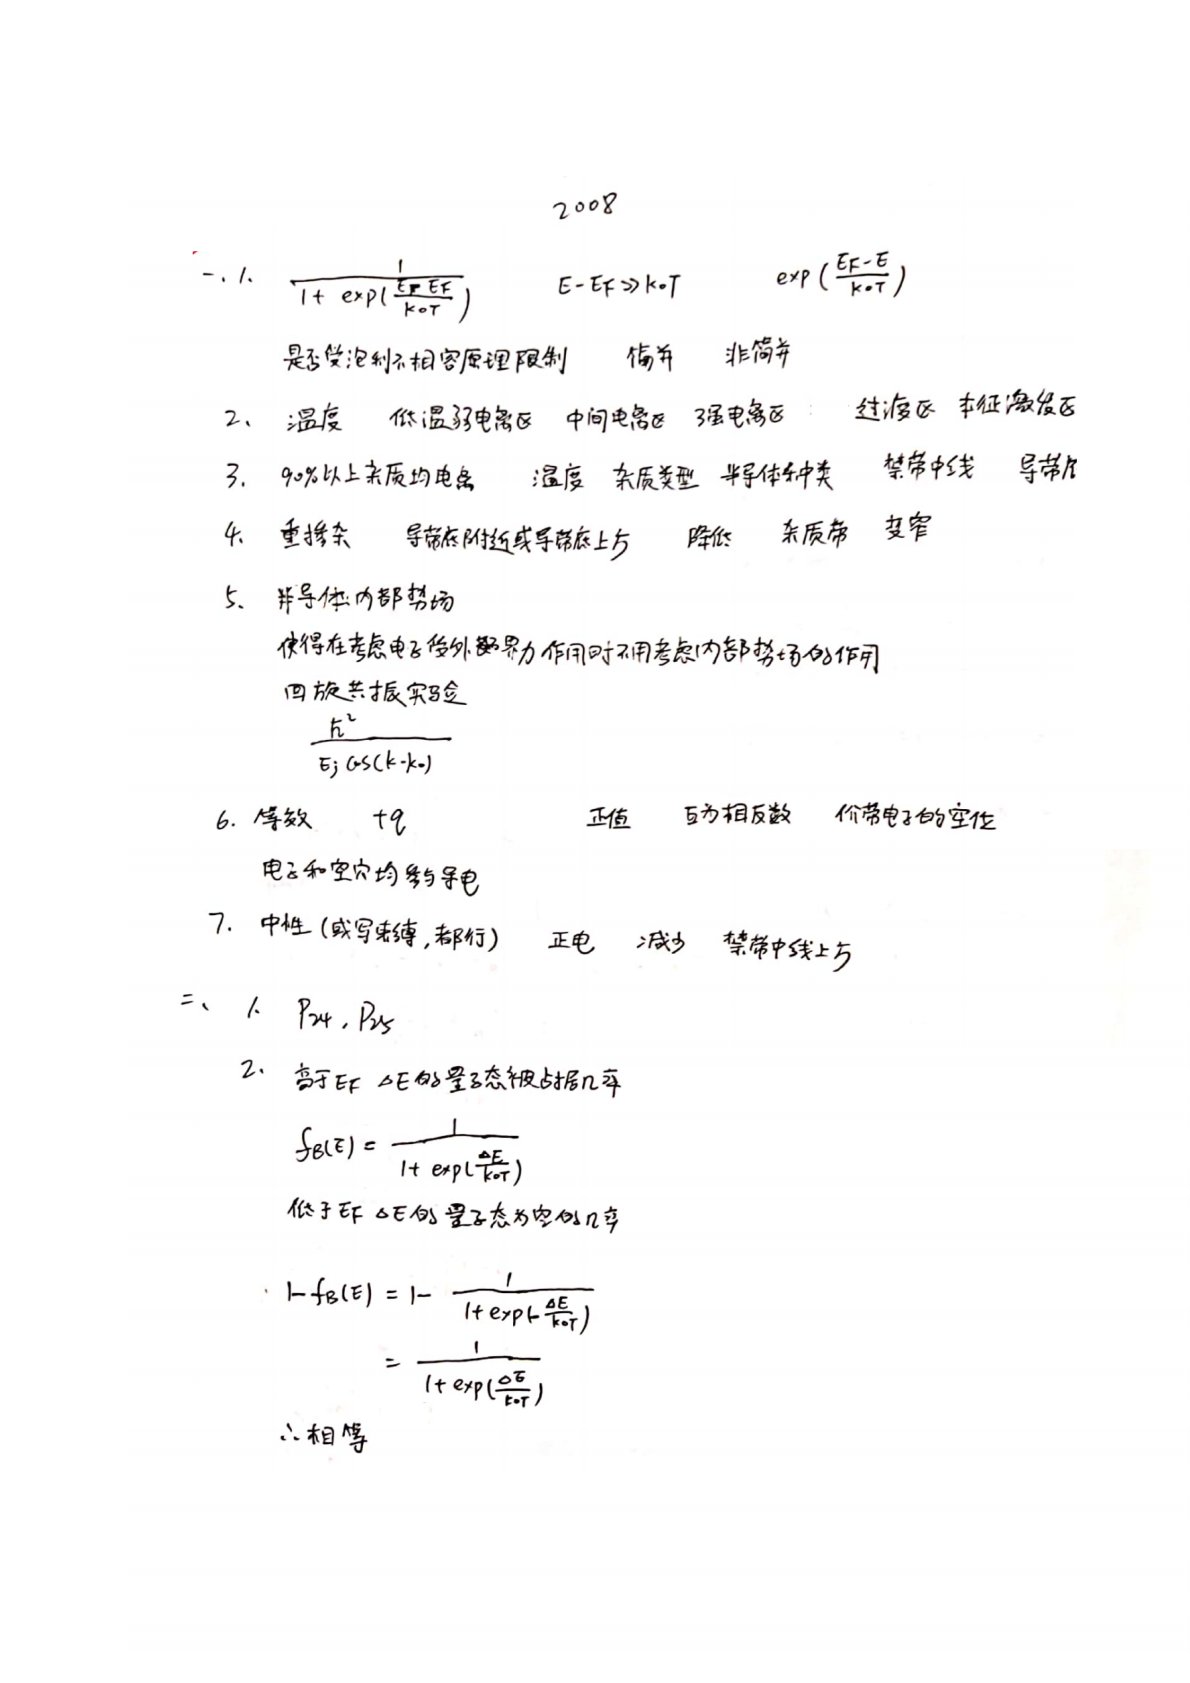 2008
一、1. 1/(1+exp((E-EF)/k₀T)) E-EF≫k₀T exp((EF-E)/k₀T)
是否受泡利不相容原理限制 简并 非简并
2、 温度 低温弱电离区 中间电离区 强电离区 过渡区 本征激发区
3. 90%以上杂质均电离 温度 杂质类型 半导体种类 禁带中线 导带
4. 重掺杂 导带底附近或导带底上方 降低 杂质带 变窄
5、 半导体内部势场
使得在考虑电子受外界力作用时不用考虑内部势场的作用
回旋共振实验
ħ²/(Ej cos(k-k₀))
6. 等效 +q 正值 互为相反数 价带电子的空位
电子和空穴均参与导电
7. 中性(或写束缚,都行) 正电 减少 禁带中线上方
二、 1. P24, P25
2. 高于EF ΔE的量子态被占据几率
fB(E) = 1/(1+exp(ΔE/k₀T))
低于EF ΔE的量子态为空的几率
1-fB(E) = 1- 1/(1+exp(-ΔE/k₀T))
= 1/(1+exp(ΔE/k₀T))
∴相等